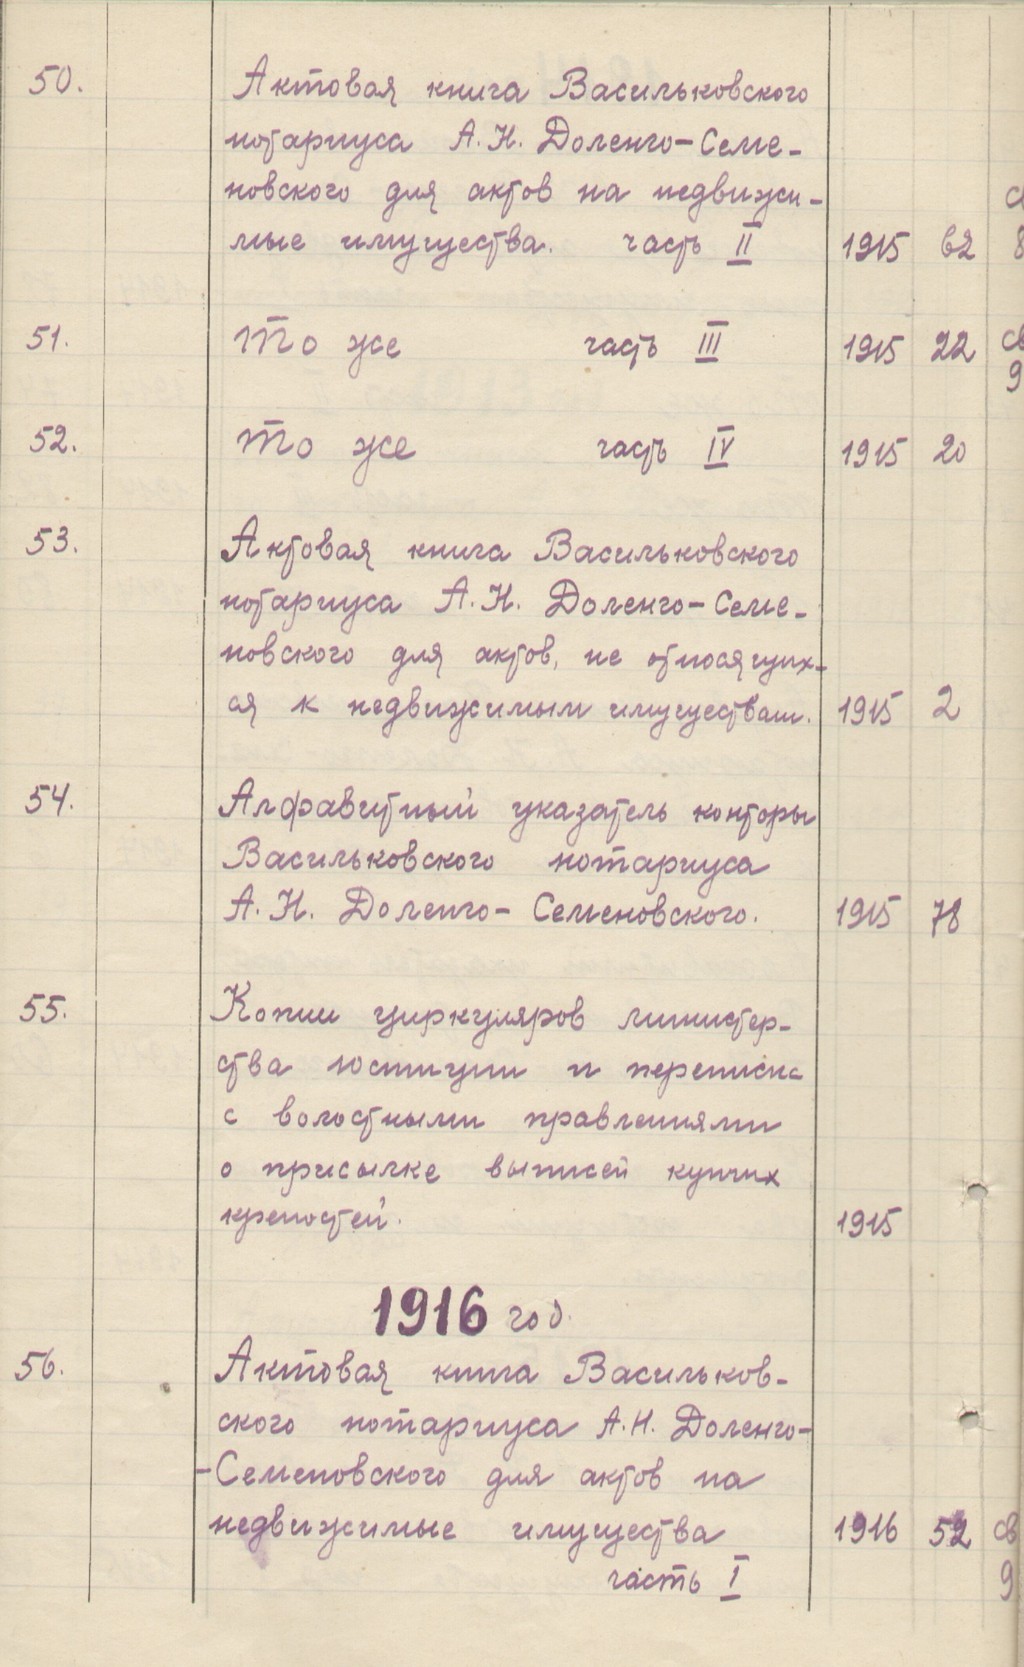 50. Актовая книга Васильковского
нотариуса А.Н. Доленго-Семе-
новского для актов на недвижи-
мые имущества. часть II 1915 62
св
8
51. То же часть III 1915 22 св
9
52. То же часть IV 1915 20
53. Актовая книга Васильковского
нотариуса А.Н. Доленго-Семе-
новского для актов, не относящих-
ся к недвижимым имуществам. 1915 2
54. Алфавитный указатель конторы
Васильковского нотариуса
А.Н. Доленго-Семеновского. 1915 78
55. Копии циркуляров министер-
ства юстиции и переписка
с волостными правлениями
о присылке выписей купчих
крепостей. 1915
1916 год.
56. Актовая книга Васильков-
ского нотариуса А.Н. Доленго-
-Семеновского для актов на
недвижимые имущества 1916 52 св
часть I 9